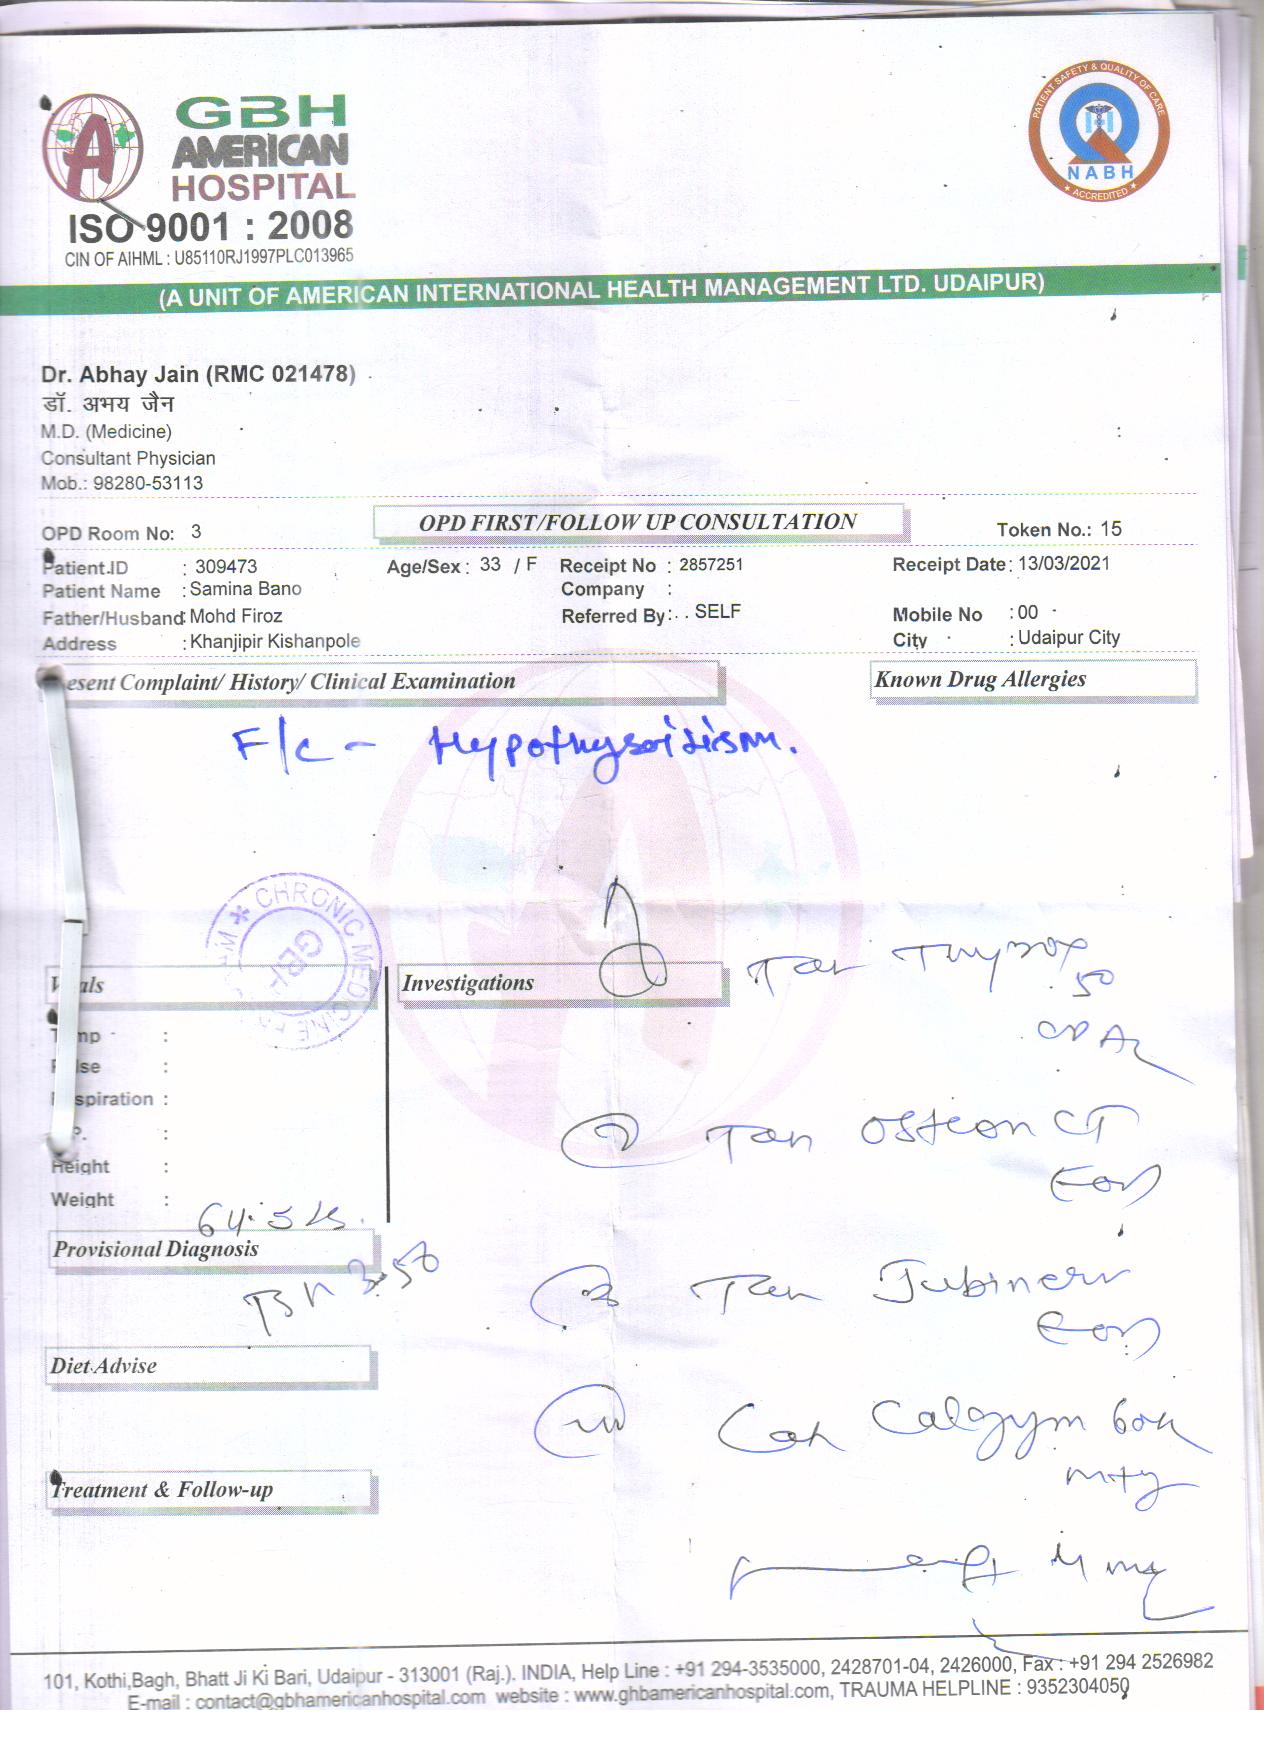 GBH
AMERICAN
HOSPITAL
ISO 9001 : 2008
CIN OF AIHML : U85110RJ1997PLC013965
PATIENT SAFETY & QUALITY OF CARE
NABH
★ ACCREDITED ★
(A UNIT OF AMERICAN INTERNATIONAL HEALTH MANAGEMENT LTD. UDAIPUR)
Dr. Abhay Jain (RMC 021478)
डॉ. अभय जैन
M.D. (Medicine)
Consultant Physician
Mob.: 98280-53113
OPD Room No: 3 OPD FIRST/FOLLOW UP CONSULTATION Token No.: 15
Patient.ID : 309473 Age/Sex : 33 / F Receipt No : 2857251 Receipt Date : 13/03/2021
Patient Name : Samina Bano Company :
Father/Husband : Mohd Firoz Referred By : . . SELF Mobile No : 00
Address : Khanjipir Kishanpole City : Udaipur City
esent Complaint/ History/ Clinical Examination Known Drug Allergies
F/c - Hypothysoidism.
CHRONIC MEDICINE
GBH
Tab Thyrox
50
V als Investigations
T mp :
P lse :
R spiration :
.P. :
Tab Osteon CT
Height :
Weight :
64.5
Provisional Diagnosis
TSH 3.50
Tab Jubinerv
Diet Advise
Cap Calgym 60K
Treatment & Follow-up
101, Kothi Bagh, Bhatt Ji Ki Bari, Udaipur - 313001 (Raj.). INDIA, Help Line : +91 294-3535000, 2428701-04, 2426000, Fax : +91 294 2526982
E-mail : contact@gbhamericanhospital.com website : www.ghbamericanhospital.com, TRAUMA HELPLINE : 9352304050